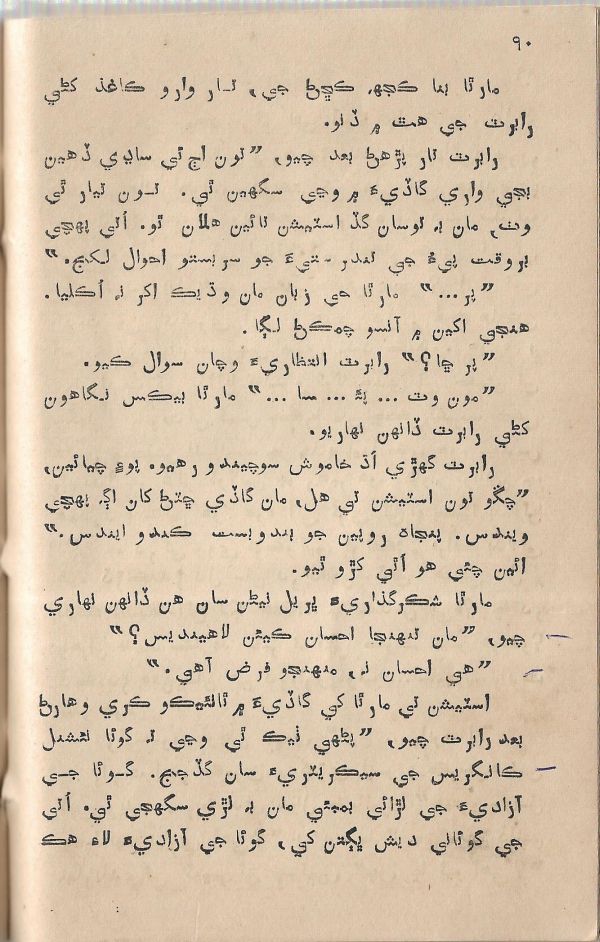 ۹۰
مارٿا بنا ڪجهه ڪڇڻ جي، تار وارو ڪاغذ کڻي
رابرٽ جي هٿ ۾ ڏنو.
رابرٽ تار پڙهڻ بعد چيو، ”تون اڄ ئي ساڍي ڏهين
بجي واري گاڏيءَ ۾ وڃي سگهين ٿي. تون تيار ٿي
وٺ، مان به توسان گڏ اسٽيشن تائين هلان ٿو. اُتي پهچي
بروقت پيءُ جي تندرستيءَ جو سربستو احوال لکج.“
”پر...“ مارٿا جي زبان مان وڌيڪ اکر نه اُڪليا.
هنجي اکين ۾ آنسو چمڪڻ لڳا.
”پر ڇا؟“ رابرٽ انتظاريءَ وچان سوال ڪيو.
”مون وٽ ... پئـ ... سا ...“ مارٿا بيڪس نگاهون
کڻي رابرٽ ڏانهن نهاريو.
رابرٽ گهڙي اڌ خاموش سوچيندو رهيو. پوءِ چيائين،
”چڱو تون اسٽيشن تي هل، مان گاڏي ڇٽڻ کان اڳ پهچي
ويندس. پنجاه روپين جو بندوبست ڪندو ايندس.“
ائين چئي هو اُٿي کڙو ٿيو.
مارٿا شڪرگذاريءَ ڀريل نيڻن سان هن ڏانهن نهاري
چيو، ”مان تنهنجا احسان ڪيئن لاهينديس؟“
”هي احسان نه، منهنجو فرض آهي.“
اسٽيشن تي مارٿا کي گاڏيءَ ۾ ٺائيڪو ڪري وهارڻ
بعد رابرٽ چيو، ”پڻهين ٺيڪ ٿي وڃي ته گوئا نئشنل
ڪانگريس جي سيڪريٽريءَ سان گڏجج. گوئا جي
آزاديءَ جي لڙائي بمبئي مان به لڙي سگهجي ٿي. اُتي
جي گوئاني ديش ڀڳتن کي، گوئا جي آزاديءَ لاءِ هڪ